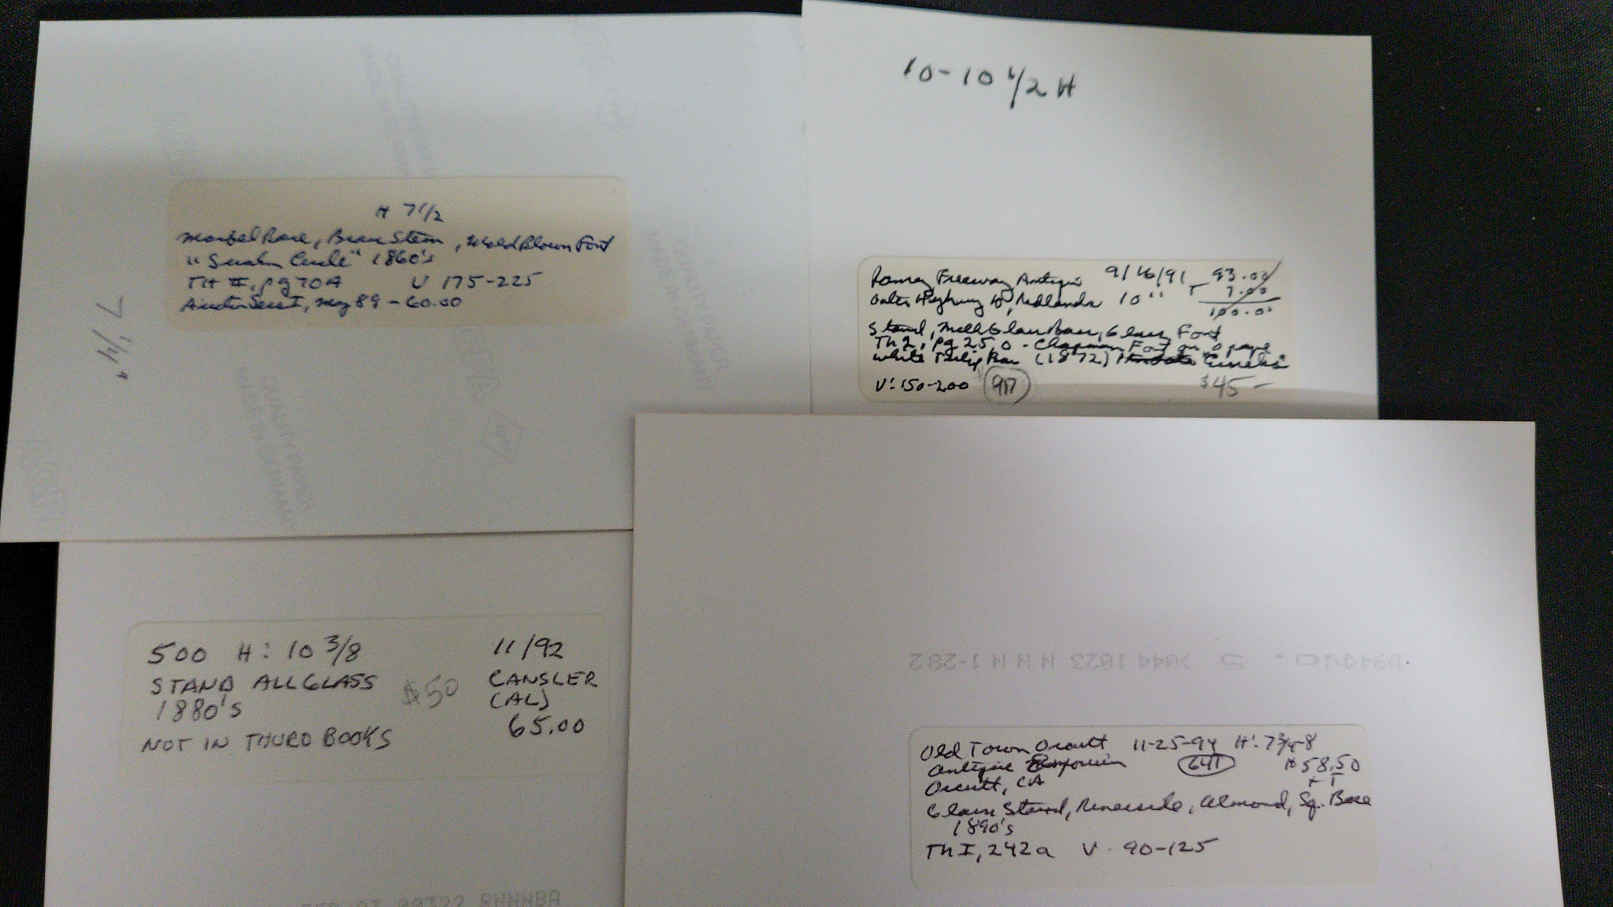 H 7 1/2
Marbel Base, Brass Stem, Mold Blown Font
1860's
TH II, pg 70A V 175-225
May 89 - 60.00
7 1/4"
10-10 1/2 H
Ramsey Freeway Antique 9/16/91 93.00
Outer Highway 10, Redlands 10" T 7.00
100.00
Stand, Milk Glass Base, Glass Font
Th 2, pg 25, O - Chapman Font on opaque
White Tulip Base (1872) "Circles"
V: 150-200 917 $45-
500 H: 10 3/8 11/92
STAND ALL GLASS $50 CANSLER
1880'S (AL)
NOT IN THURO BOOKS 65.00
Old Town Orcutt 11-25-94 H: 7 3/4-8
Antique Emporium 641 $58.50
Orcutt, CA + T
Glass Stand, Riverside, Almond, Sq. Base
1890's
Th I, 242a V 90-125